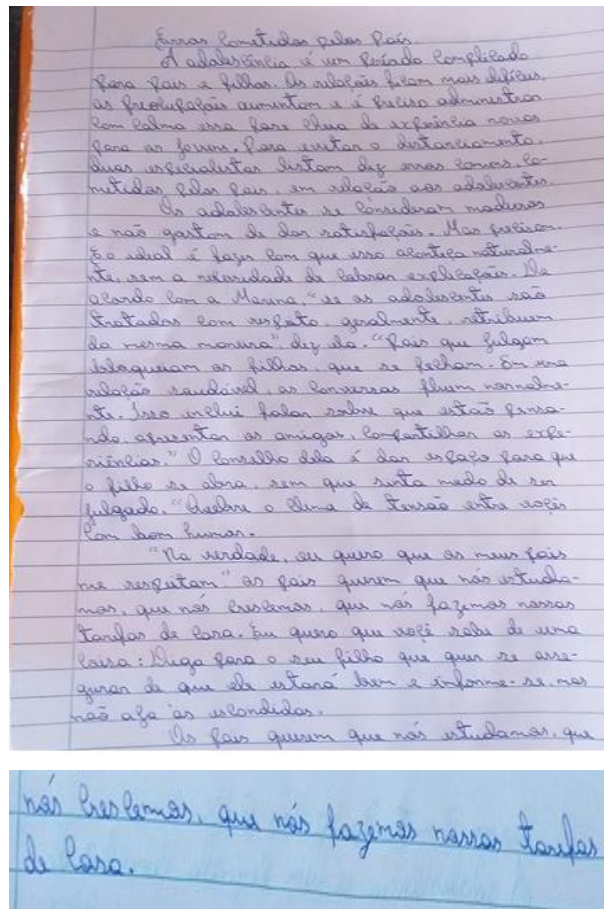 Erros Cometidos pelos Pais
A adolescência é um período complicado
para pais e filhos. As relações ficam mais difíceis,
as preocupações aumentam e é preciso administrar
com calma essa fase cheia de experiência novas
para os jovens. Para evitar o distanciamento,
duas especialistas listam dez erros comuns co-
metidos pelos pais, em relação aos adolescentes.
Os adolescentes se consideram maduros
e não gostam de dar satisfações. Mas precisam.
E o ideal é fazer com que isso aconteça naturalme-
nte, sem a necessidade de cobrar explicações. De
acordo com a Marina, "se os adolescentes são
tratados com respeito, geralmente, retribuem
da mesma maneira" diz ela. "Pais que julgam
bloqueiam os filhos, que se fecham. Em uma
relação saudável, as conversas fluem normalme-
nte. Isso inclui falar sobre que estão pensa-
ndo, apresentar os amigos, compartilhar as expe-
riências." O conselho dela é dar espaço para que
o filho se abra, sem que sinta medo de ser
julgado. "Quebre o clima de tensão entre vocês
com bom humor.
"Na verdade, eu quero que os meus pais
me respeitam" os pais querem que nós estuda-
mos, que nós crescemos, que nós fazemos nossas
tarefas de casa. Eu quero que você sabe de uma
coisa: Diga para o seu filho que quer se asse-
gurar de que ele estará bem e informe-se, mas
não aja às escondidas.
Os pais querem que nós estudamos, que
nós crescemos, que nós fazemos nossas tarefas
de casa.